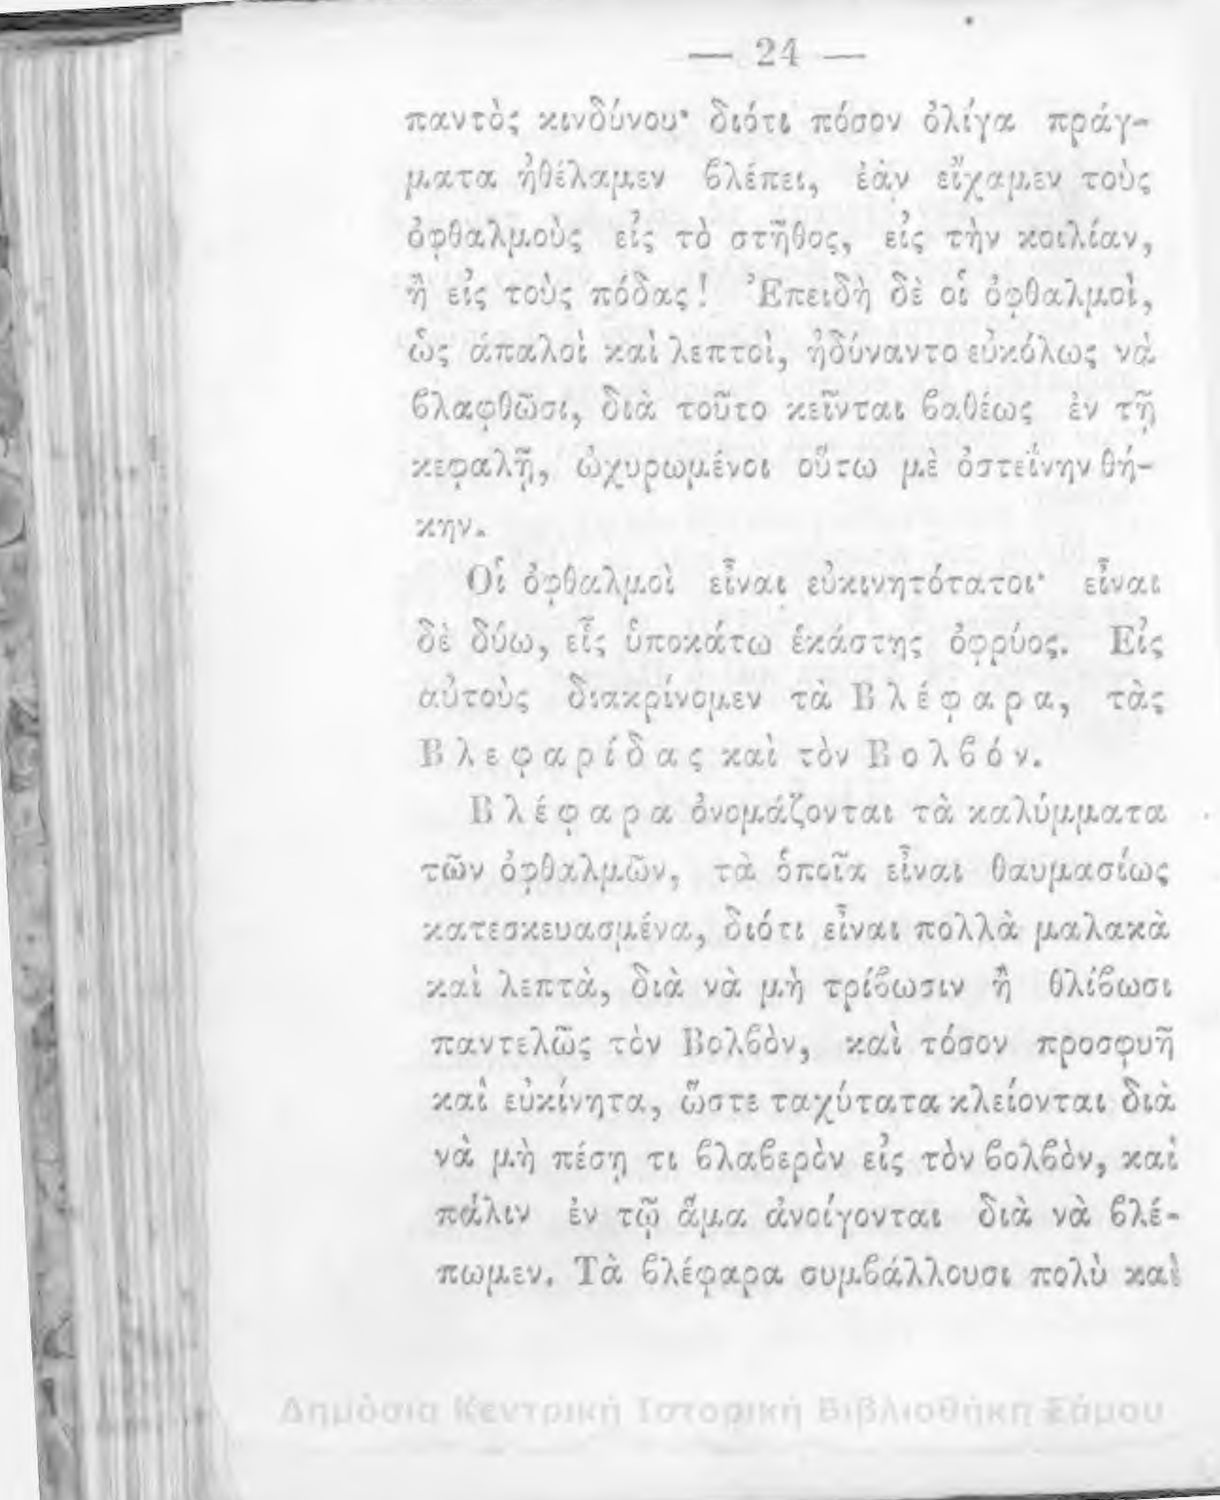 — 24 —
παντὸς κινδύνου· διότι πόσον ὀλίγα πράγ-
ματα ἠθέλαμεν βλέπει, ἐὰν εἴχαμεν τοὺς
ὀφθαλμοὺς εἰς τὸ στῆθος, εἰς τὴν κοιλίαν,
ἢ εἰς τοὺς πόδας! Ἐπειδὴ δὲ οἱ ὀφθαλμοὶ,
ὡς ἁπαλοὶ καὶ λεπτοὶ, ἠδύναντο εὐκόλως νὰ
βλαφθῶσι, διὰ τοῦτο κεῖνται βαθέως ἐν τῇ
κεφαλῇ, ὠχυρωμένοι οὕτω μὲ ὀστεΐνην θή-
κην.
Οἱ ὀφθαλμοὶ εἶναι εὐκινητότατοι· εἶναι
δὲ δύω, εἷς ὑποκάτω ἑκάστης ὀφρύος. Εἰς
αὐτοὺς διακρίνομεν τὰ Βλέφαρα, τὰς
Βλεφαρίδας καὶ τὸν Βολβόν.
Βλέφαρα ὀνομάζονται τὰ καλύμματα
τῶν ὀφθαλμῶν, τὰ ὁποῖα εἶναι θαυμασίως
κατεσκευασμένα, διότι εἶναι πολλὰ μαλακὰ
καὶ λεπτὰ, διὰ νὰ μὴ τρίβωσιν ἢ θλίβωσι
παντελῶς τὸν Βολβὸν, καὶ τόσον προσφυῆ
καὶ εὐκίνητα, ὥστε ταχύτατα κλείονται διὰ
νὰ μὴ πέσῃ τι βλαβερὸν εἰς τὸν βολβὸν, καὶ
πάλιν ἐν τῷ ἅμα ἀνοίγονται διὰ νὰ βλέ-
πωμεν. Τὰ βλέφαρα συμβάλλουσι πολὺ καὶ
Δημόσια Κεντρική Ιστορική Βιβλιοθήκη Σάμου